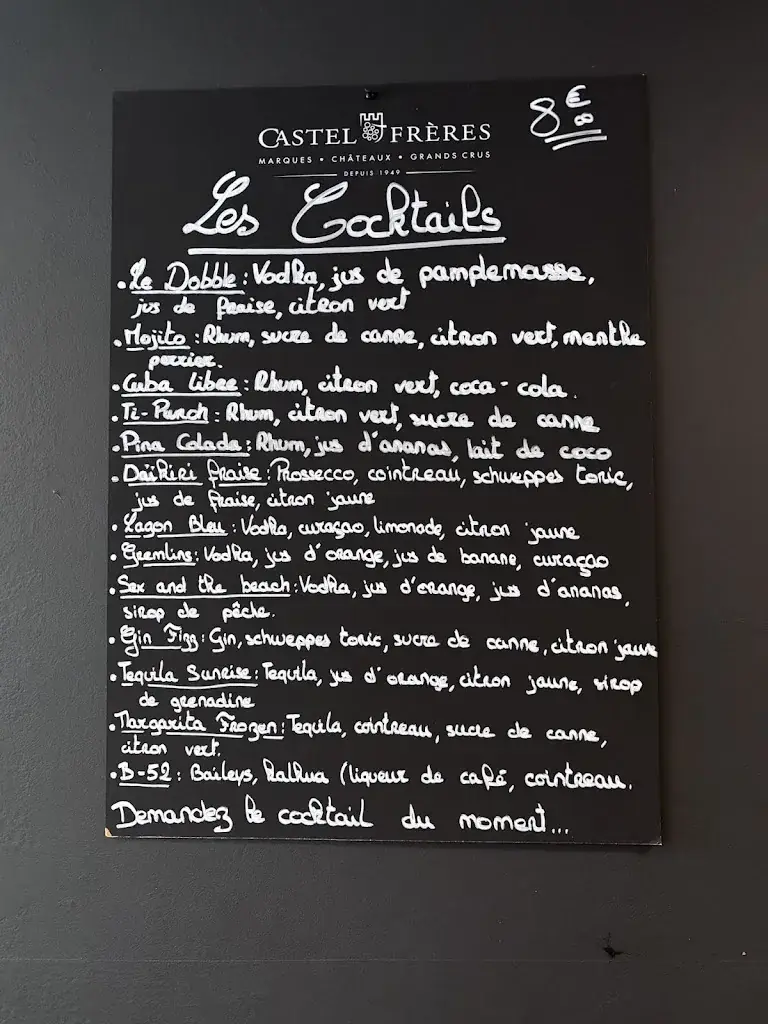 CASTEL FRÈRES
MARQUES • CHÂTEAUX • GRANDS CRUS
DEPUIS 1949
8 €
Les Cocktails
• Le Dobble : Vodka, jus de pamplemousse,
jus de fraise, citron vert
• Mojito : Rhum, sucre de canne, citron vert, menthe
perrier.
• Cuba libre : Rhum, citron vert, coca-cola.
• Ti-Punch : Rhum, citron vert, sucre de canne
• Pina Colada : Rhum, jus d'ananas, lait de coco
• Daïkiri fraise : Prossecco, cointreau, schweppes tonic,
jus de fraise, citron jaune
• Lagon Bleu : Vodka, curaçao, limonade, citron jaune
• Gremlins : Vodka, jus d'orange, jus de banane, curaçao
• Sex and the beach : Vodka, jus d'orange, jus d'ananas,
sirop de pêche.
• Gin Fizz : Gin, schweppes tonic, sucre de canne, citron jaune
• Tequila Sunrise : Tequila, jus d'orange, citron jaune, sirop
de grenadine
• Margarita Frozen : Tequila, cointreau, sucre de canne,
citron vert.
• B-52 : Baileys, Kalhua (liqueur de café, cointreau.
Demandez le cocktail du moment...